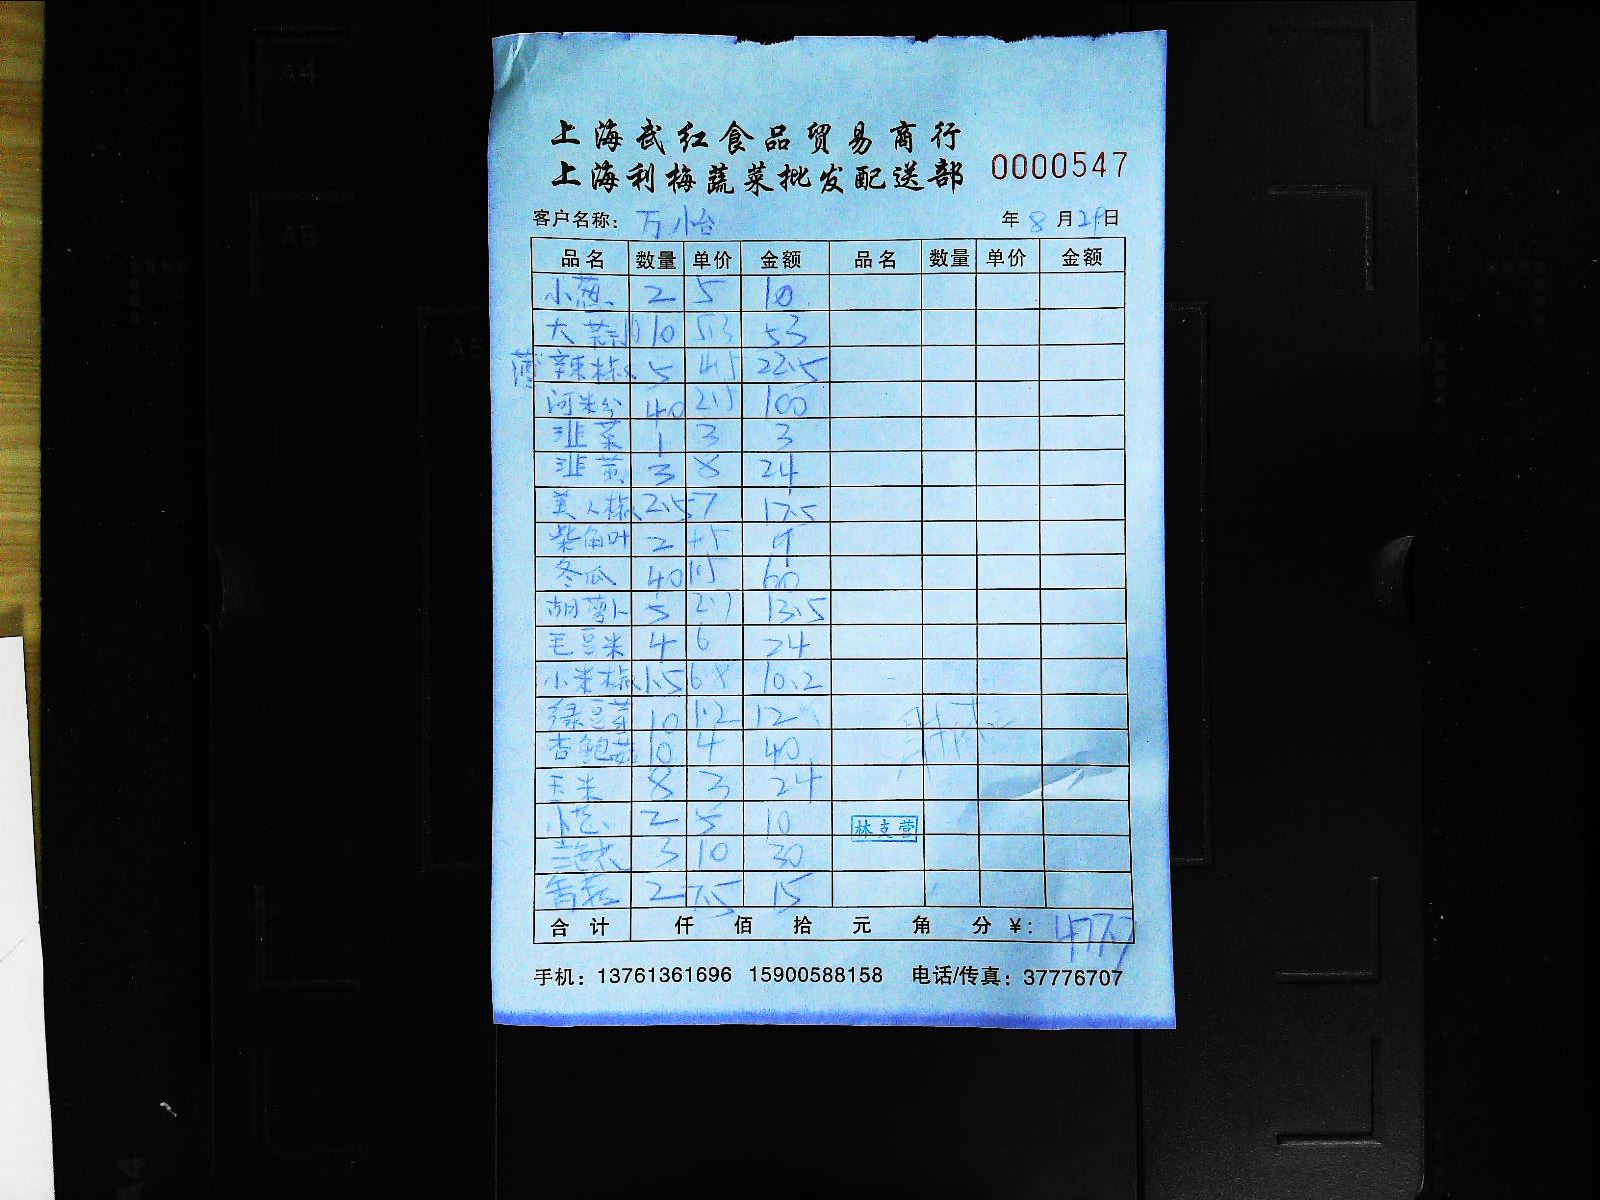 上海武红食品贸易商行
上海利梅蔬菜批发配送部 0000547
客户名称： 万小台 年 8 月 29 日
品名 数量 单价 金额 品名 数量 单价 金额
小葱 2 5 10
大蒜 10 5.3 53
薄辣椒 5 4.5 22.5
河米分 40 100
韭菜 1 3 3
韭黄 3 8 24
美人椒 2.5 7 17.5
2 9
冬瓜 40 1.5 60
胡萝卜 5 2.7 13.5
毛豆米 4 6 24
小米椒 1.5 6.8 10.2
绿豆芽 10 1.2 12
杏鲍菇 10 4 40
玉米 8 3 24
2 5 10
3 10 30
2 7.5 15
林支营
合计 仟 佰 拾 元 角 分 ¥： 477.7
手机：13761361696 15900588158 电话/传真：37776707
A4
A5